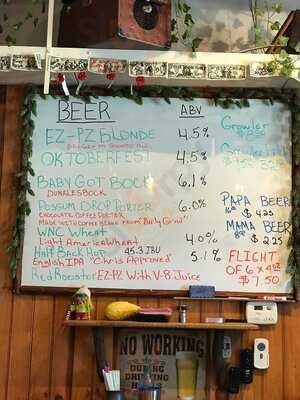 BEER
ABV
EZ-PZ BLONDE
4.5%
OKTOBERFEST
4.5%
BABY GOT BOCK
6.1%
DUNKLESBOCK
POSSUM DROP PORTER
6.0%
CHOCOLATE COFFEE PORTER
MADE WITH COFFEE BEANS FROM "Daily Grind"
WNC Wheat
Light America Wheat
4.0%
Half Back Hop 45.3 IBU
5.1%
English IPA "Chris Approved"
Red Rooster EZ-PZ With V-8 Juice
Growler
PAPA BEER
16oz $4.25
MAMA BEER
8oz $2.25
FLIGHT
OF 6 x 4oz
$7.50
NO WORKING
DURING
DRINKING
HOURS